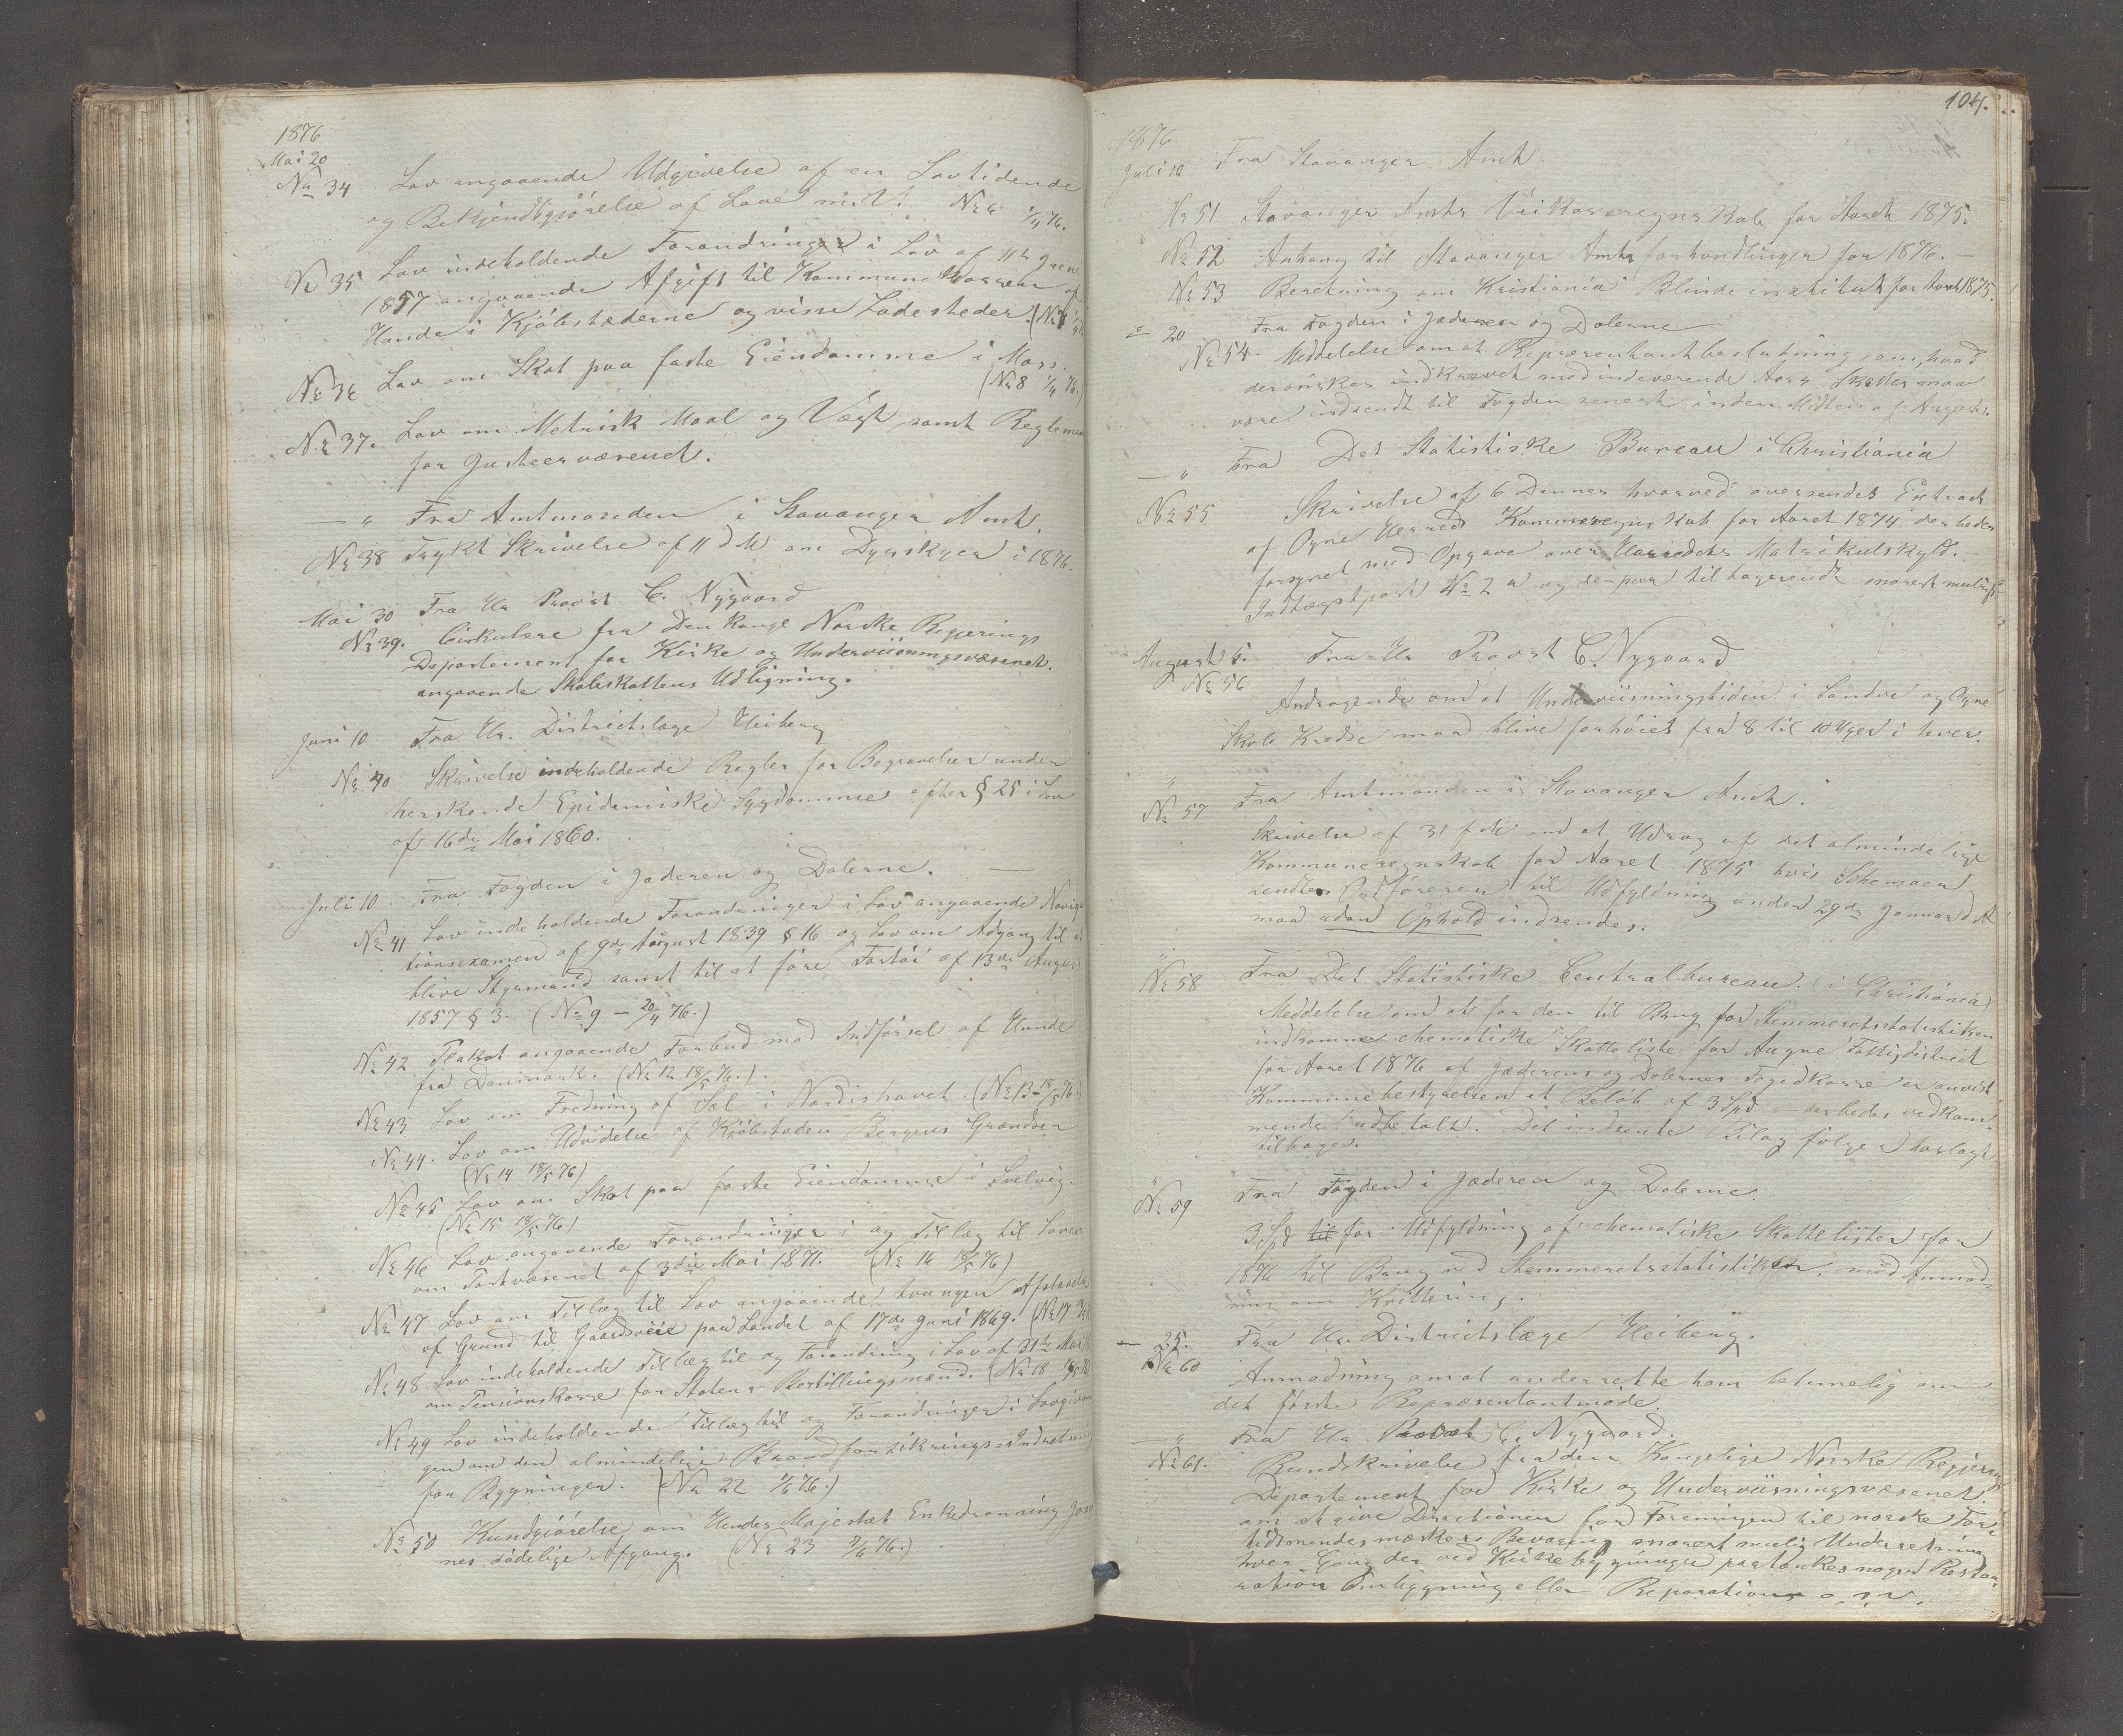 1876
Mai 20
No 34 Lov angaaende Udgivelse af en Lovtidende
og Bekjendtgjörelse af Love m.V. No 6 1/4 76.
No 35 Lov indeholdende Forandringer i Lov af 11te Juni
1857 angaaende Afgift til Kommunekassen af
Hunde i Kjöbstæderne og visse Ladesteder. (No 7
No 36 Lov om Skat paa faste Eiendomme i Moss.
(No 8 1/4 76.)
No 37. Lov om Metrisk Maal og Vægt samt Reglement
for Justeervæsenet.
— " Fra Amtmanden i Stavanger Amt.
No 38 Trykt Skrivelse af 11 d M om Dyrskuer i 1876.
Mai 30 Fra Hr Provst C. Nygaard
No 39. Cirkulære fra Den Kongl Norske Regjerings
Departement for Kirke og Underviisningsvæsenet.
angaaende Skoleskattens Udligning.
Juni 10 Fra Hr. Districtslæge Heiberg
No 40 Skrivelse indeholdende Regler for Begravelser under
herskende Epidemiske Sygdomme efter § 25 i Lov
af 16de Mai 1860.
Juli 10 Fra Fogden i Jæderen og Dalerne. —
No 41 Lov indeholdende Forandringer i Lov angaaende Naviga
tionsexamen af 9de August 1839 § 16 og Lov om Adgang til at
blive Styrmand samt til at före Fartöi af 13de August
1857 § 3. (No 9 — 20/4 76.)
No 42 Plakat angaaende Forbud mod Indförsel af Hunde
fra Danmark. (No 12 18/5 76.)
No 43 Lov om Fredning af Sæl i Nordishavet. (No 13 18/5 76.)
No 44. Lov om Udvidelse af Kjöbstaden Bergens Grændser
(No 14 18/5 76)
No 45 Lov om Skat paa faste Eiendomme i Svelvig.
(No 15 18/5 76)
No 46 Lov angaaende Forandringer i og Tillæg til Loven
om Postvæsenet af 3die Mai 1871. (No 16 18/5 76)
No 47 Lov om Tillæg til Lov angaaende tvungen Afstaaelse
af Grund til Gaardsveie paa Landet af 17de Juni 1869. (No 17
No 48 Lov indeholdende Tillæg til og Forandring i Lov af 31te Mai
om Pensionskasse for Statens Bestillingsmænd. (No 18
No 49 Lov indeholdende Tillæg til og Forandringer i Lovgivnin
gen om den almindelige Brandforsikrings-Indretning
for Bygninger. (No 22 1/6 76.)
No 50 Kundgjörelse om Hendes Majestæt Enkedronning Jose
nes dödelige Afgang. (No 23 76.)
104.
1876
Juli 10 Fra Stavanger Amt
No 51 Stavanger Amts Veikasseregnskab for Aaret 1875.
No 52 Anhang til Stavanger Amtsforhandlinger for 1876. —
No 53 Beretning om Kristiania Blindeinstitut for Aaret 1875.
" 20 Fra Fogden i Jæderen og Dalerne
No 54. Meddelelse om at Repræsentantbeslutning om, hvad
der önskes indkrævet med indeværende Aars Skatter maa
være indsendt til Fogden senest inden Midten af August.
— " Fra Det Statistiske Bureau i Christiania
No 55 Skrivelse af 6 Dennes hvorved oversendes Extract
af Ogne Herreds Kommuneregnskab for Aaret 1874 der bedes
forsynet med Opgave over Herredets Matrikulskyld.
Indtægtspost No 2 a og derpaa tilbagesendt snarest muligt
August 5. Fra Hr Provst C. Nygaard
No 56
Andragende om at Underviisningstiden i Sandve og Ogne
Skole Kredse maa blive forhöiet fra 8 til 10 Uger i hver.
"
No 57 Fra Amtmanden i Stavanger Amt.
Skrivelse af 31 f M om at Udrag af det almindelige
Kommuneregnskab for Aaret 1875 hvis Schemaer
sendtes Ordföreren til Udfyldning under 29de Januar d A
maa uden Ophold indsendes.
"
No 58 Fra Det Statistiske Centralbureau. i Christiania
Meddelelse om at for den til Brug for Stemmeretsstatistiken
indkomne schematiske Skatteliste for Augne Fattigdistrict
for Aaret 1876 af Jæderens og Dalernes Fogedkasse er anvist
Kommunebestyrelsen et Belöb af 3 Spd — der bedes vedkom-
mende udbetalt. Det indsendte Bilag fölger hoslagt
tilbage.
"
No 59 Fra Fogden i Jæderen og Dalerne.
3 Spd til for Udfyldning af schematiske Skattelister for
1876 til Brug ved Stemmeretsstatistiken, med Anmod-
ning om Kvittering.
— 25. Fra Hr. Districtslæge Heiberg.
No 60
Anmodning om at underrette ham betimelig om
det förste Repræsentantmöde.
— " Fra Hr. Provst C. Nygaard.
No 61. Rundskrivelse fra den Kongelige Norske Regjerings
Departement for Kirke og Underviisningsvæsenet.
om at give Directionen for Foreningen til norske For-
tidsmindesmærkers Bevaring snarest mulig Underretning
hver Gang der ved Kirkebygninger paatænkes nogen Restau-
ration Ombygning eller Reparation o.s.v.